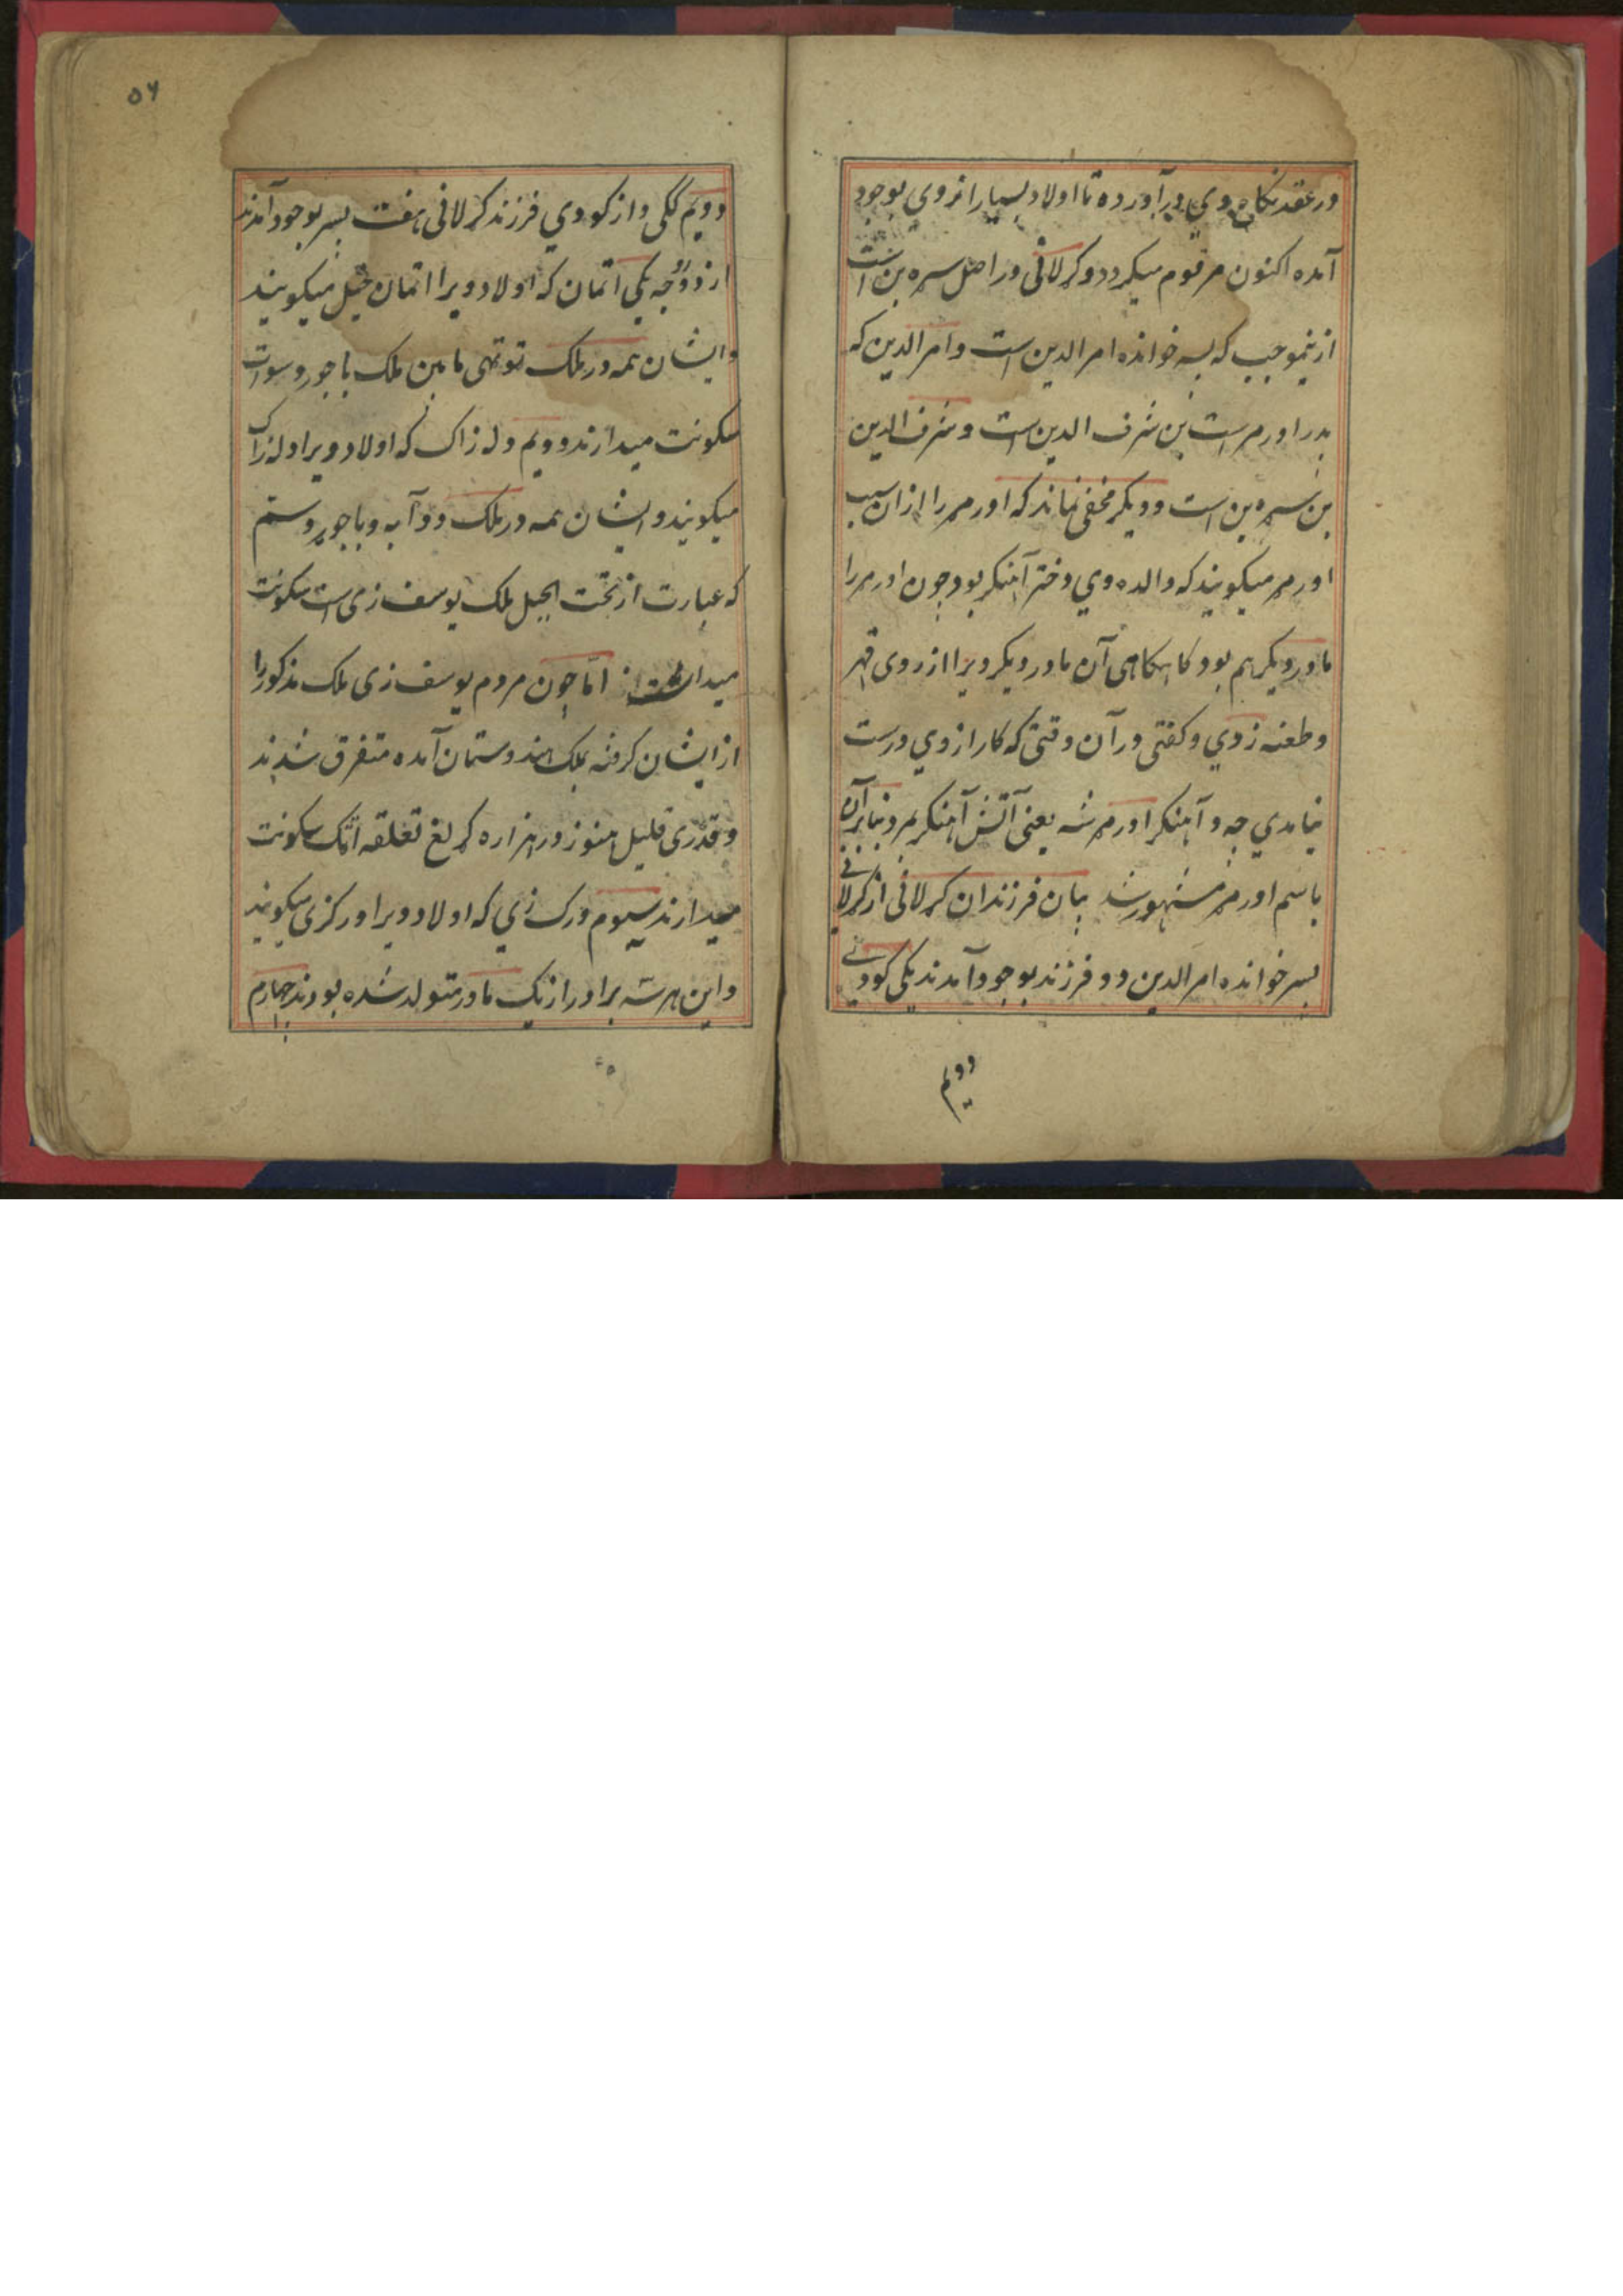 در عقد نکاح وی درآورده تا اولاد بسیار از وی بوجود
آمده اکنون مرقوم میکردد و کرلانی در اصل سره بن است
ازینموجب که پسر خوانده امرالدین است و امرالدین که
پدر اورمر است بن شرف الدین است و شرف الدین
بن سره بن است و دیکر مخفی نماند که اورمر را ازان سبب
اورمر میکویند که والده وی دختر آهنکر بود چون اورمر را
مادر دیکر هم بود کاهکاهی آن مادر دیکر ویرا از روی قهر
و طعنه زدی و کفتی در آن وقتی که کار از وی درست
نیامدی چه د آهنکر اورمر شه یعنی آتش آهنکر مر و بنابرآن
باسم اورمر مشهور شد بیان فرزندان کرلانی از کرلانی
پسر خوانده امرالدین دو فرزند بوجود آمدند یکی کودی
دویم
۵۶
دویم ککی و از کودی فرزند کرلانی هفت پسر بوجود آمدند
از دو زوجه یکی اتمان که اولاد ویرا اتمان خیل میکویند
و ایشان همه در ملک توتهی مابین ملک باجور و سوات
سکونت میدارند دویم دله زاک که اولاد ویرا دله زاک
میکویند و ایشان همه در ملک دوآبه و باجور و ستم
که عبارت از تحت الجبل ملک یوسف زی است سکونت
اما چون مردم یوسف زی ملک مذکور را
از ایشان کرفته بملک هندوستان آمده متفرق شدند
و قدری قلیل هنوز در هزاره کرلغ تعلقه اتک سکونت
میدارند سیوم ورک زی که اولاد ویرا ورکزی میکویند
و این هر سه برادر از یک مادر متولد شده بودند چهارم